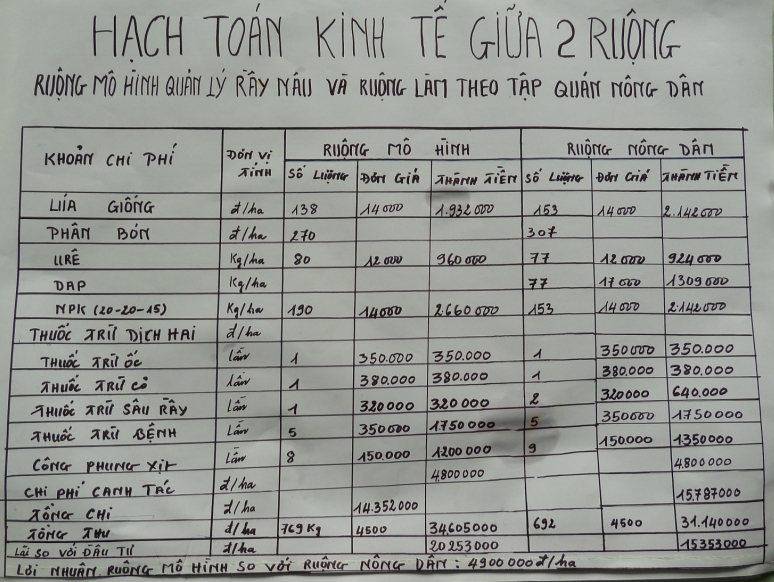 HẠCH TOÁN KINH TẾ GIỮA 2 RUỘNG
RUỘNG MÔ HÌNH QUẢN LÝ RẦY NÂU VÀ RUỘNG LÀM THEO TẬP QUÁN NÔNG DÂN
KHOẢN CHI PHÍ ĐƠN VỊ TÍNH RUỘNG MÔ HÌNH RUỘNG NÔNG DÂN
SỐ LƯỢNG ĐƠN GIÁ THÀNH TIỀN SỐ LƯỢNG ĐƠN GIÁ THÀNH TIỀN
LÚA GIỐNG đ/ha 138 14000 1.932000 153 14000 2.142000
PHÂN BÓN đ/ha 270 307
URÊ Kg/ha 80 12000 960000 77 12000 924000
DAP Kg/ha 77 17000 1309000
NPK (20-20-15) Kg/ha 190 14000 2.660000 153 14000 2142000
THUỐC TRỪ DỊCH HẠI đ/ha
THUỐC TRỪ ỐC lần 1 350.000 350.000 1 350000 350.000
THUỐC TRỪ CỎ lần 1 380.000 380.000 1 380000 380.000
THUỐC TRỪ SÂU RẦY lần 1 320000 320000 2 320000 640.000
THUỐC TRỪ BỆNH lần 5 350000 1750000 5 350000 1750000
CÔNG PHUNG XỊT lần 8 150.000 1200000 9 150000 1350000
CHI PHÍ CANH TÁC đ/ha 4800000 4.800000
TỔNG CHI đ/ha 14.352000 15.787000
TỔNG THU đ/ha 769Kg 4500 34605000 692 4500 31.140000
LÃI SO VỚI ĐẦU TƯ đ/ha 20253000 15353000
LỢI NHUẬN RUỘNG MÔ HÌNH SO VỚI RUỘNG NÔNG DÂN : 4900000đ/ha